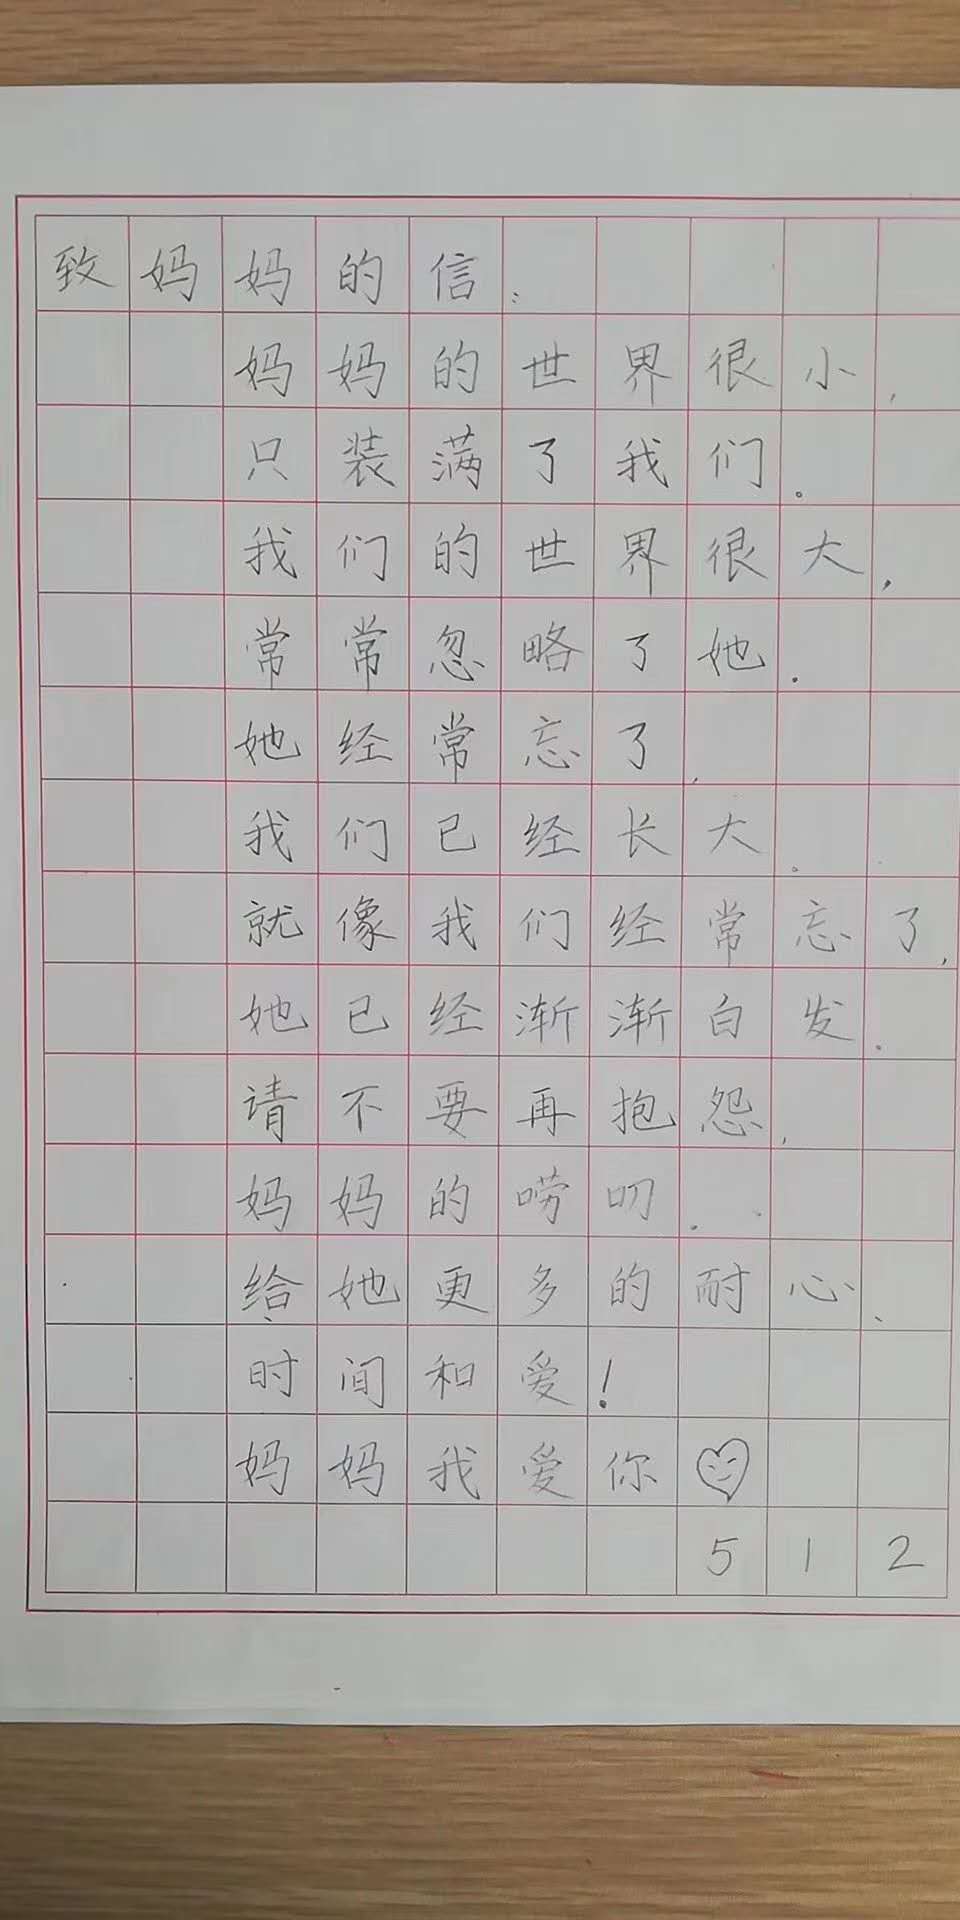 致妈妈的信：
妈妈的世界很小，
只装满了我们。
我们的世界很大，
常常忽略了她。
她经常忘了，
我们已经长大。
就像我们经常忘了，
她已经渐渐白发。
请不要再抱怨，
妈妈的唠叨。
给她更多的耐心、
时间和爱！
妈妈我爱你
512